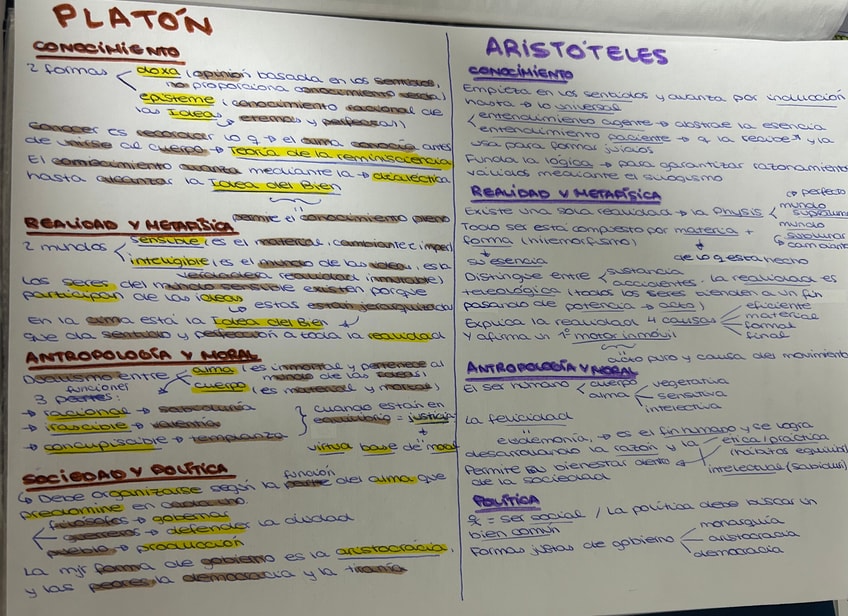 PLATÓN
CONOCIMIENTO
2 formas
doxa (opinión basada en los sentidos,
no proporciona conocimiento verda)
episteme (conocimiento racional de
las Ideas
eternas y perfectas)
conocer es recordar lo q → el alma conocía antes
de unirse al cuerpo → Teoría de la reminiscencia
El conocimiento avanza mediante la → dialéctica
hasta alcanzar la Idea del Bien
permite el conocimiento pleno
REALIDAD Y METAFÍSICA
2 mundos
sensible (es el material, cambiante e imper)
inteligible (es el mundo de las ideas, esta
verdadera realidad inmutable)
Los seres del mundo sensible existen porque
participan de las ideas
estas están jerarquizadas
En la cima está la Idea del Bien
que da sentido y perfección a toda la realidad
ANTROPOLOGÍA Y MORAL
Dualismo entre
alma (es inmortal y pertenece al
mundo de las ideas)
cuerpo (es material y mortal)
funciones
3 partes:
→ racional → sabiduría
→ irascible → valentía
→ concupiscible → templanza
cuando están en
equilibrio = justicia
+
virtud base de moral
SOCIEDAD Y POLÍTICA
Debe organizarse según la parte del alma que
función
predomine en cada uno
filósofos → gobernar
guerreros → defender la ciudad
pueblo → producción
La mjr forma de gobierno es la aristocracia,
y las peores la democracia y la tiranía
ARISTÓTELES
CONOCIMIENTO
Empieza en los sentidos y avanza por inducción
hasta → lo universal
entendimiento agente → abstrae la esencia
entendimiento paciente → q la recibe y la
usa para formar juicios
Funda la lógica → para garantizar razonamiento
válidos mediante el silogismo
REALIDAD Y METAFÍSICA
Existe una sola realidad → la Physis
perfecto
mundo
supralunar
mundo
sublunar
cambiante
Todo ser está compuesto por materia +
forma (hilemorfismo)
su esencia
de lo q esta hecho
Distingue entre
sustancia
accidentes. La realidad es
teleológica (todos los seres tienden a un fin
pasando de potencia → acto)
Explica la realidad 4 causas
eficiente
material
formal
final
Y afirma un 1º motor inmóvil
acto puro y causa del movimiento
ANTROPOLOGÍA Y MORAL
El ser humano
cuerpo
alma
vegetativa
sensitiva
intelectiva
La felicidad
eudemonía, → es el fin humano y se logra
desarrollando la razón y la
ética/práctica
(hábitos equilib)
intelectual (sabidur)
Permite su bienestar dentro
de la sociedad
POLÍTICA
= ser social / La política debe buscar un
bien común
Formas justas de gobierno
monarquía
aristocracia
democracia